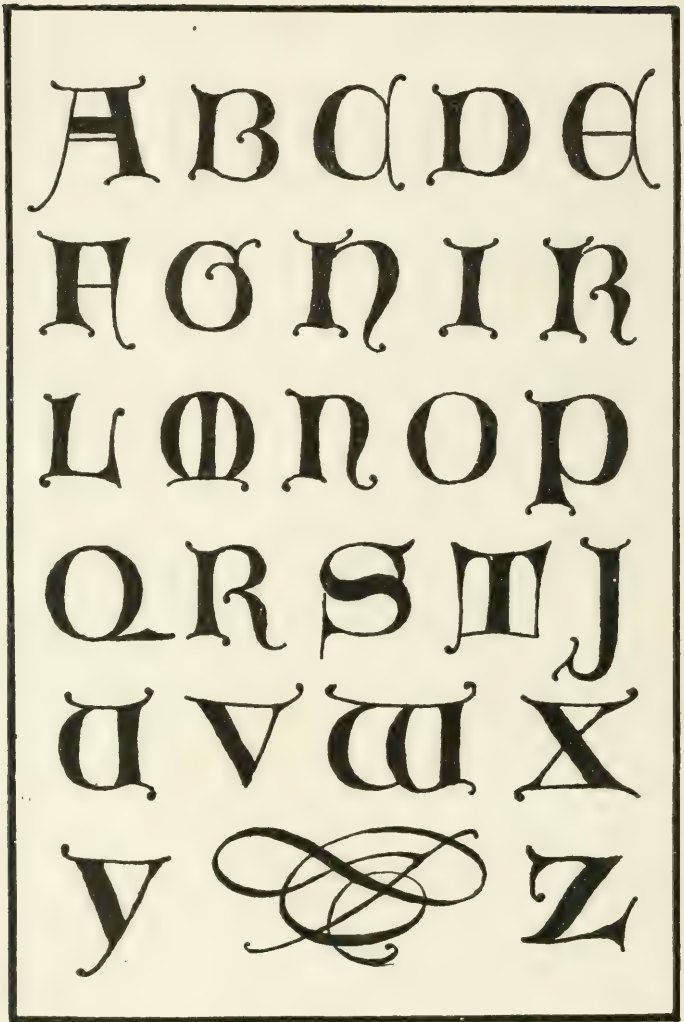 A B C D E
F G H I K
L M N O P
Q R S T J
U V W X
Y & Z